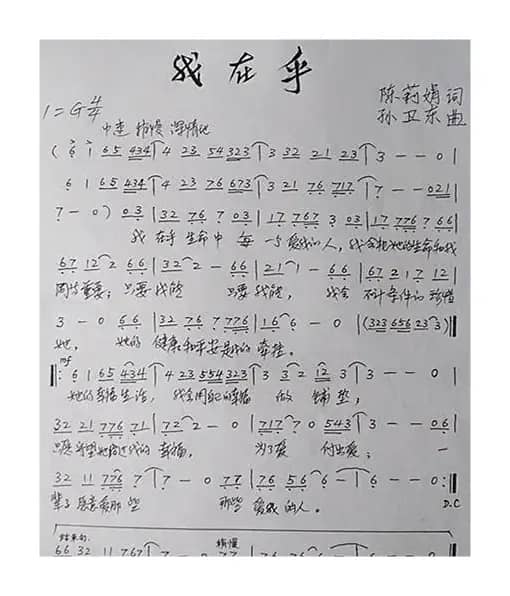 我在乎
陈莉娟 词
1=G 4/4
孙卫东 曲
中速 稍慢 深情地
( 6 1 65 434 | 4 23 54 323 | 3 32 21 23 | 3 - - 0 |
6 1 65 434 | 4 23 76 673 | 3 21 76 717 | 7 - - 021 |
7 - 0 ) 03 | 32 76 7 03 | 17 767 3 03 | 17 776 7 66 |
我 在乎 生命中 每一 爱我的人,我会把她的生命和我
67 12 2 66 | 32 2 - 66 | 21 1 - 66 | 67 21 7 12 |
同等重要;只要我能 只要我能, 我会 不计条件的 珍惜
3 - 0 66 | 32 76 7 776 | 16 6 - 0 | (323 656 23 3)
她, 她的 健康和平安是我的 牵挂。
mf
6 1 65 434 | 4 23 554 323 | 3 3 2 12 3 | 3 - - 0 |
她的幸福生活, 我会用自己的幸福 做 铺垫,
32 21 776 71 | 72 2 - 0 | 717 7 0 543 | 3 - - 06 |
只愿希望她的 幸福, 为了爱 付出爱; 一
32 11 776 7 | 7 - 0 77 | 76 56 6 - | 6 - - 0 :
辈子 愿意爱那些 那些 爱我的人。
D.C
结束句
稍慢
66 32 11 767